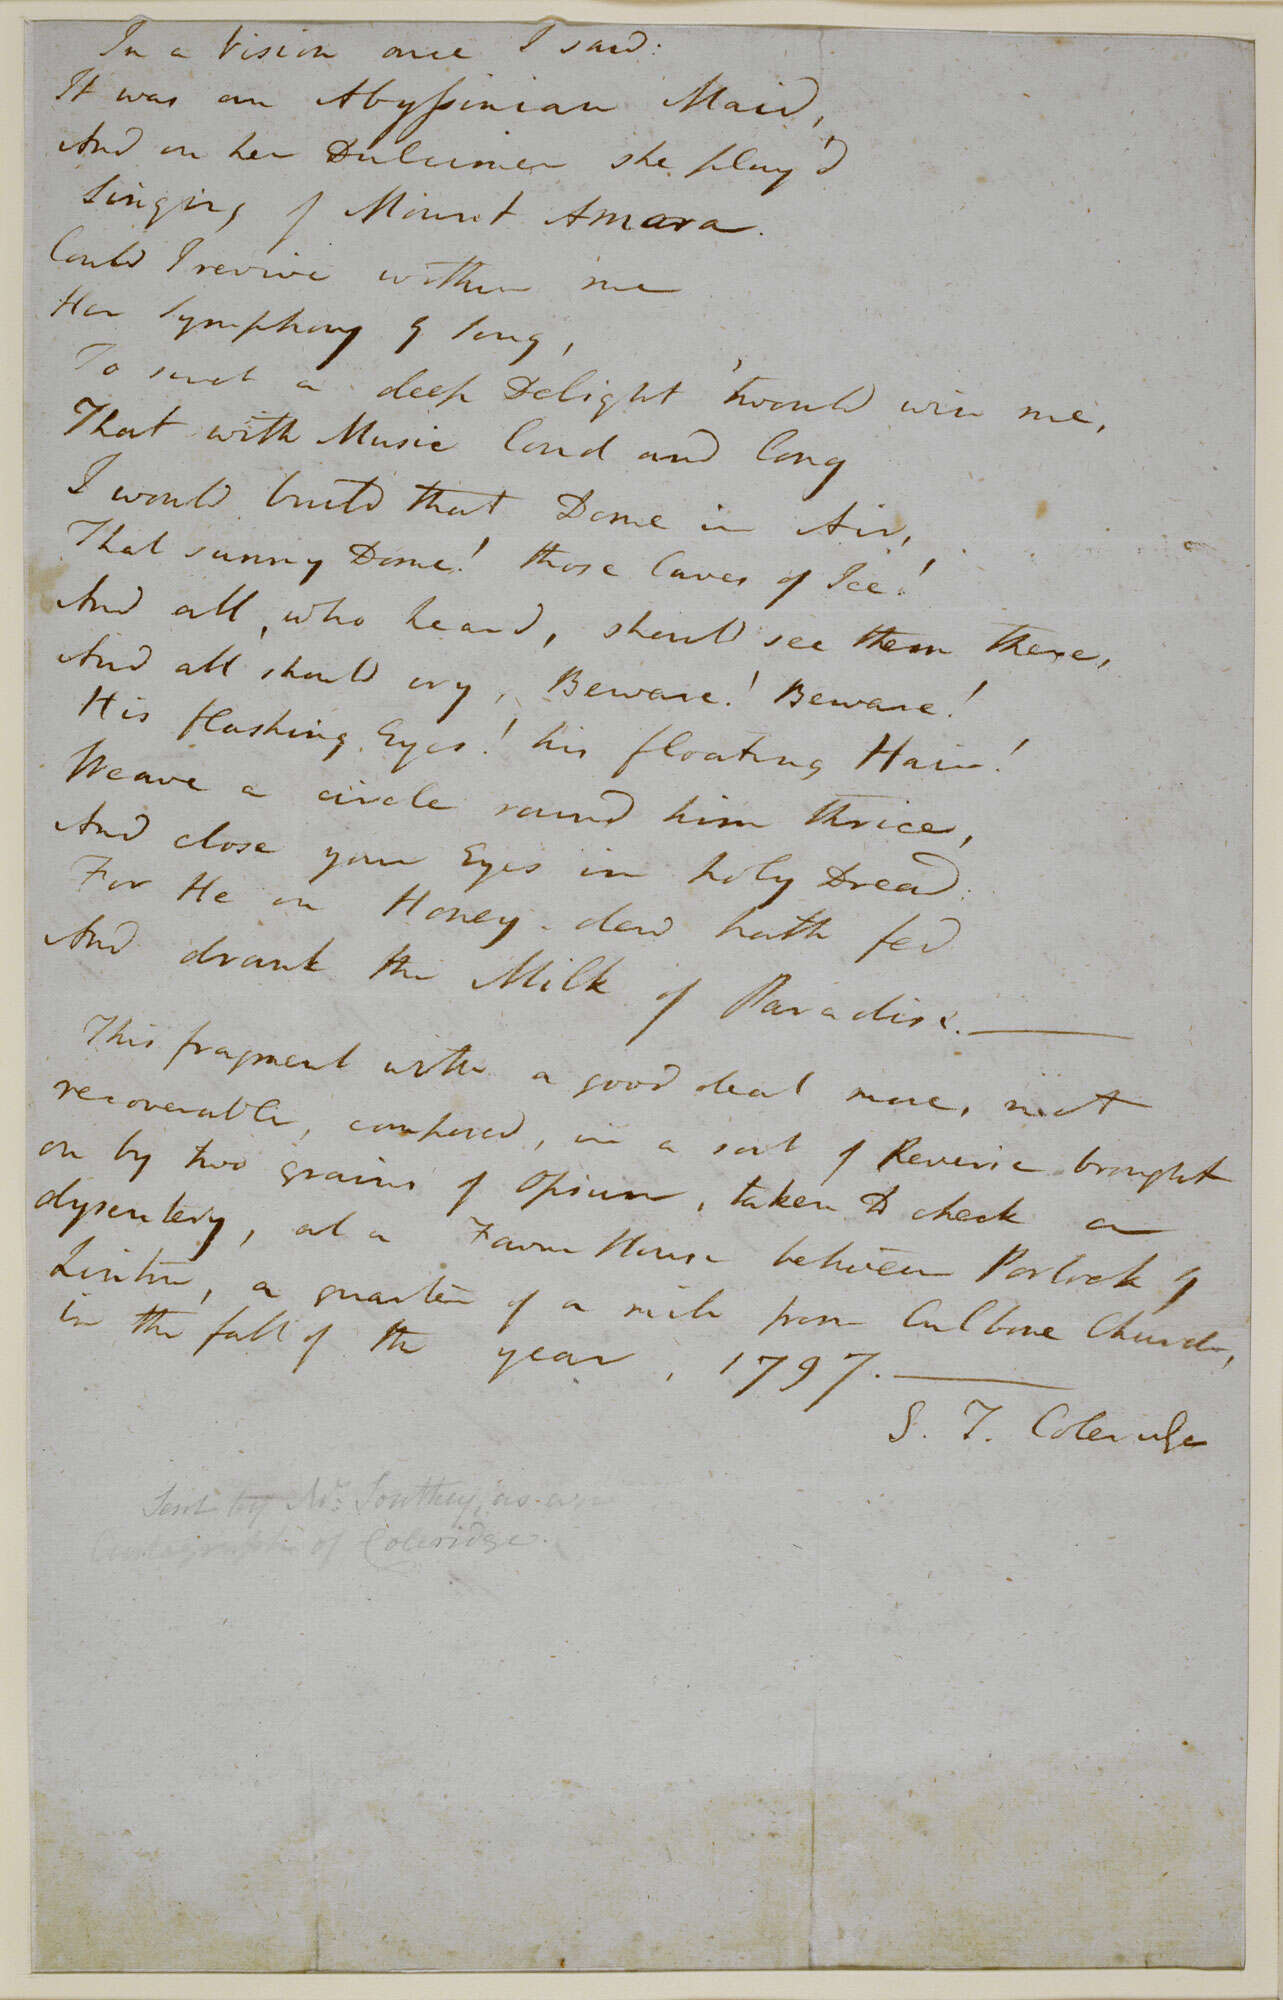 In a Vision once I saw:
It was an Abyssinian Maid,
And on her Dulcimer she play'd
Singing of Mount Amara.
Could I revive within me
Her Symphony & Song,
To such a deep Delight 'twould win me,
That with Music loud and long
I would build that Dome in Air,
That sunny Dome! those Caves of Ice!
And all, who heard, should see them there,
And all should cry, Beware! Beware!
His flashing Eyes! his floating Hair!
Weave a circle round him thrice,
And close your Eyes in holy Dread:
For He on Honey-dew hath fed
And drank the Milk of Paradise.
This fragment with a good deal more, not
recoverable, composed, in a sort of Reverie brought
on by two grains of Opium, taken to check a
dysentery, at a Farm House between Porlock &
Linton, a quarter of a mile from Culbone Church,
in the fall of the year, 1797.
S. T. Coleridge
Sent by Mr. Southey, as an
Autograph of Coleridge.